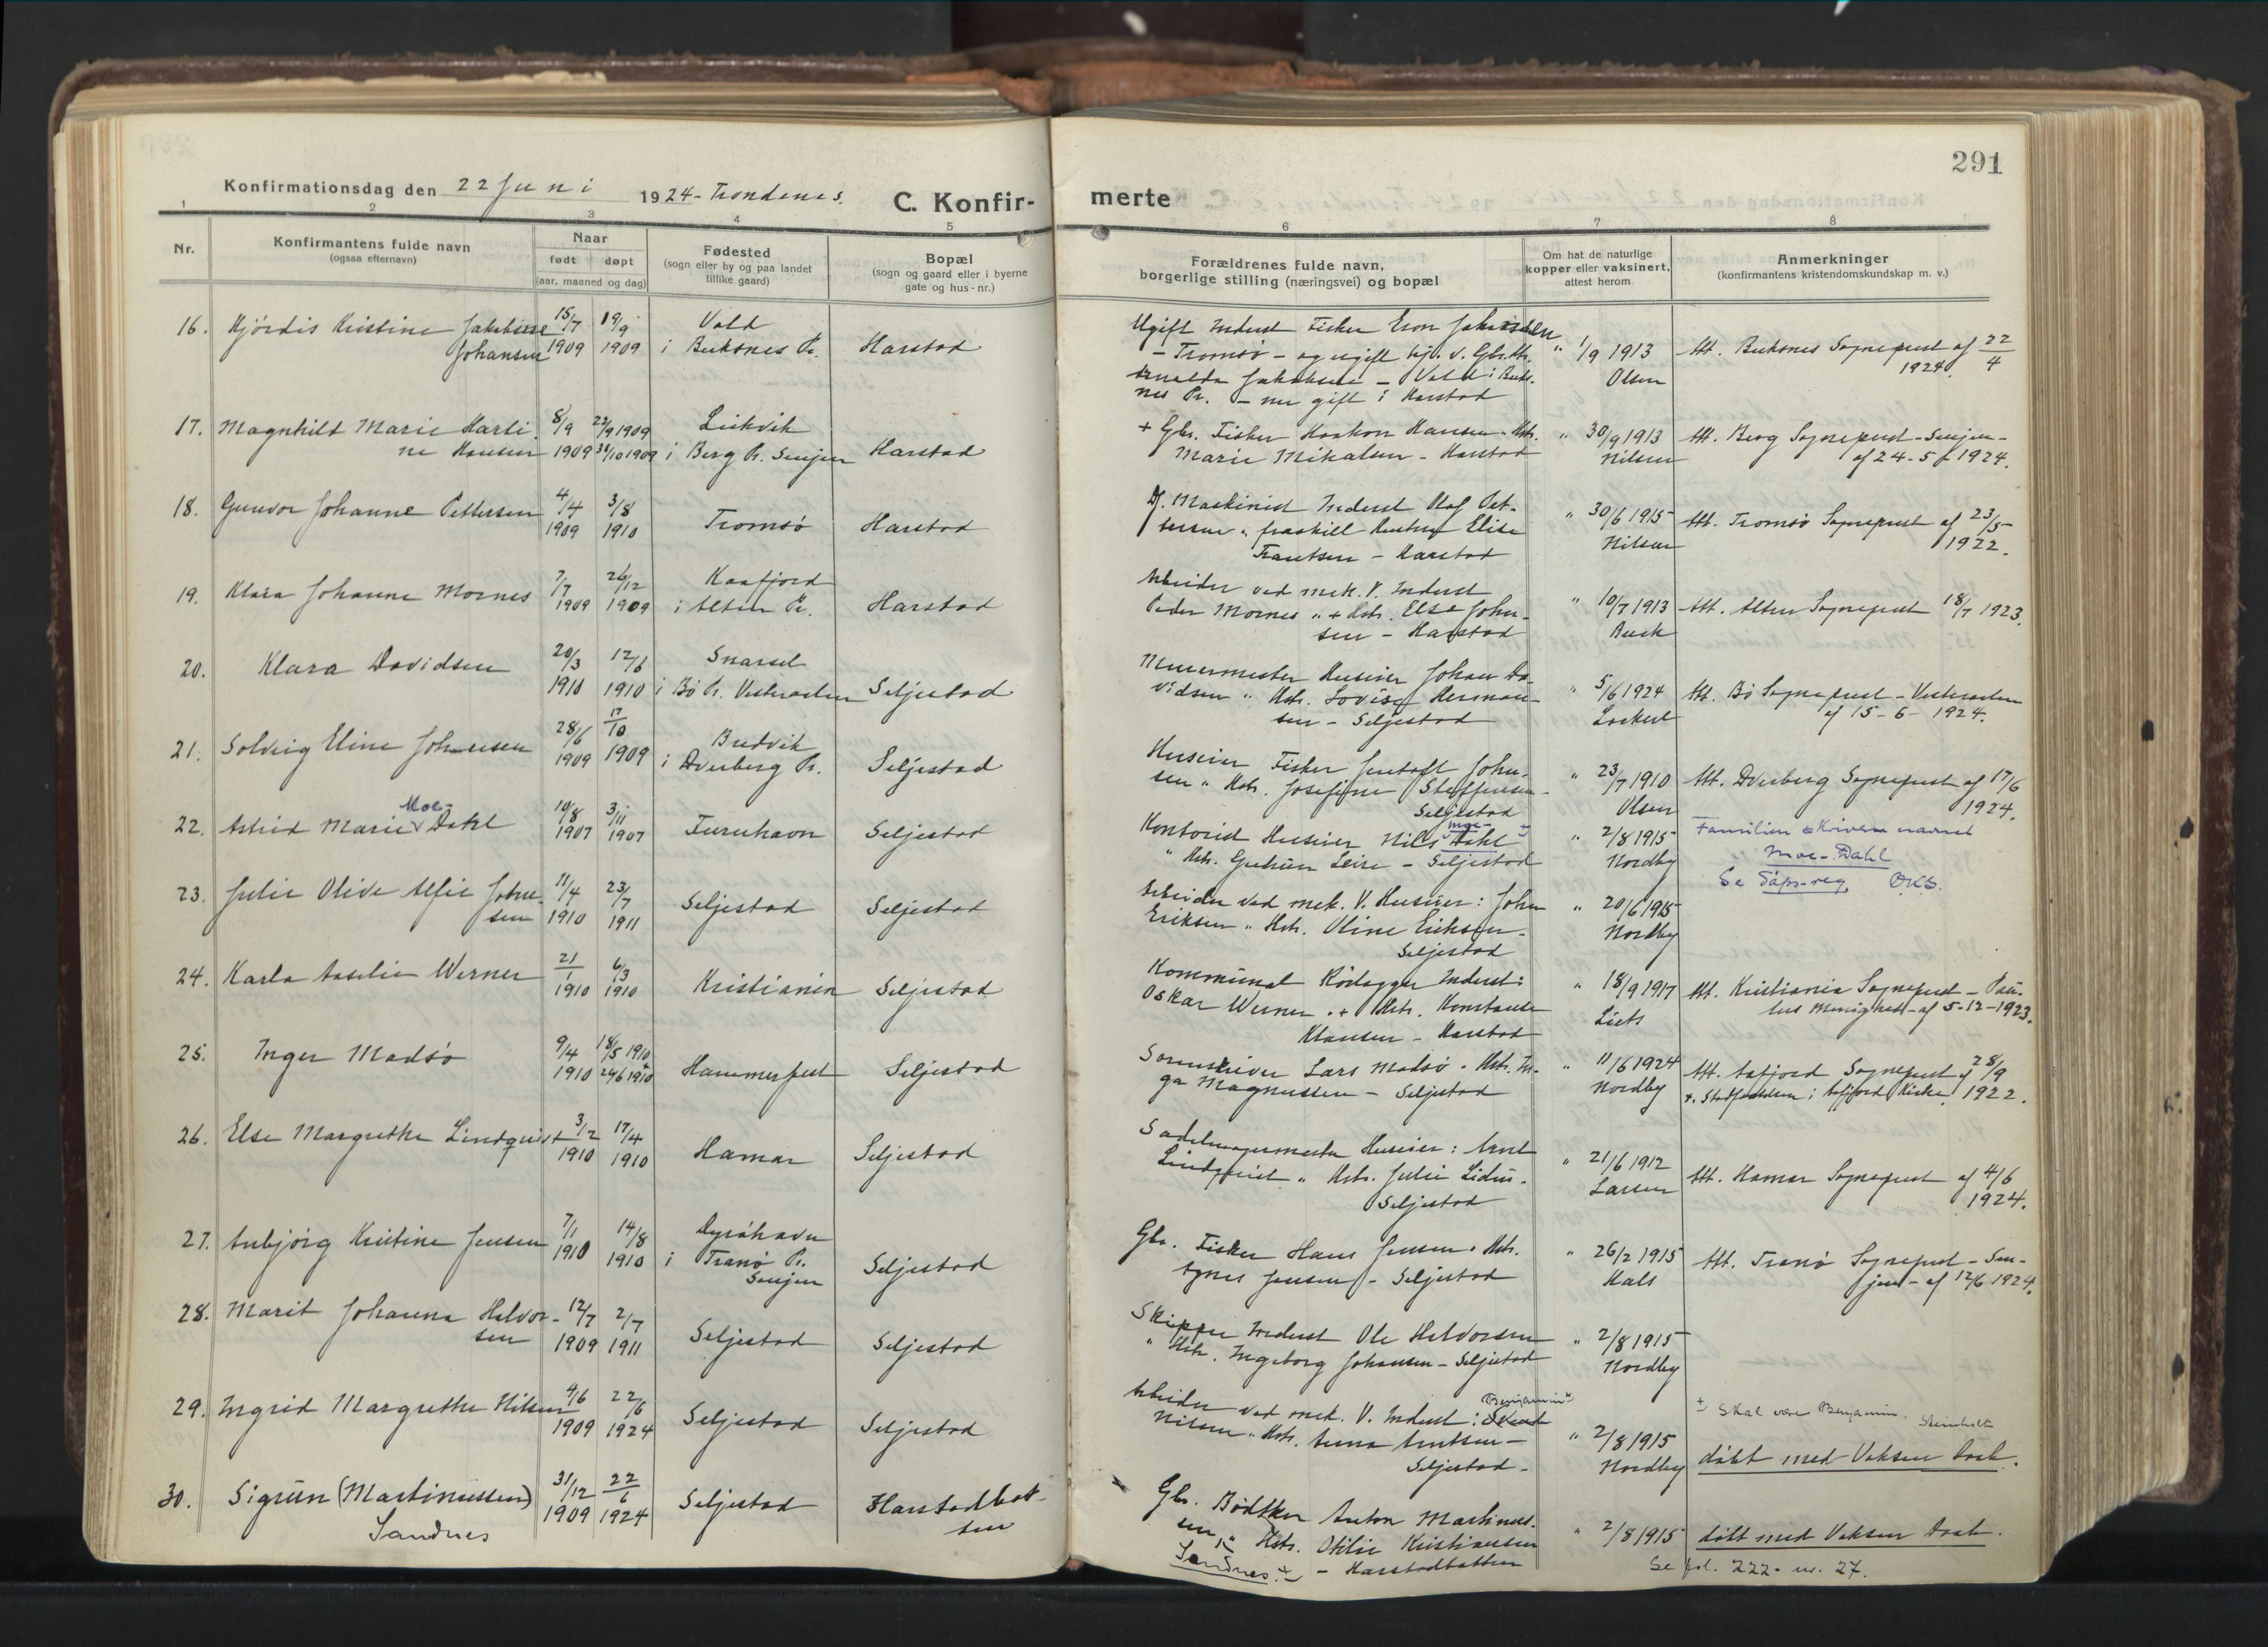 291
Konfirmationsdag den 22 Juni 1924 - Trondenes.
C. Konfir-
merte
1 2 3 4 5 6 7 8
Nr.
Konfirmantens fulde navn
(ogsaa efternavn)
Naar
født døpt
(aar, maaned og dag)
Fødested
(sogn eller by og paa landet
tillike gaard)
Bopæl
(sogn og gaard eller i byerne
gate og hus-nr.)
Forældrenes fulde navn,
borgerlige stilling (næringsvei) og bopæl
Om hat de naturlige
kopper eller vaksinert,
attest herom
Anmerkninger
(konfirmantens kristendomskundskap m. v.)
16. Hjördis Kristine Jakobine
Johansen
15/7 1909
19/9 1909
Vold
i Buksnes Pr.
Harstad
Ugift Inderst Fisker
- Tromsø - og ugift
Jakobsen - Vold i Buks-
nes Pr. - nu gift i Harstad
" 1/9 1913
Olsen
Att. Buksnes Sogneprest af 22/4
1924.
17. Magnhild Marie Harti-
ne Hansen
8/9 1909
22/9 1909
31/10 1909
Leikvik
i Berg Pr. Senjen
Harstad
+ Gbr. Fisker Haakon Hansen " Hstr.
Marie Mikalsen - Harstad
" 30/9 1913
Nilsen
Att. Berg Sogneprest - Senjen -
af 24-5 1924.
18. Gunvor Johanne Pettersen
4/4 1909
3/8 1910
Tromsø
Harstad
Df. Maskinist Inderst Olaf Pet-
tersen " fraskill Hustru Elise
Frantsen - Harstad
" 30/6 1915
Nilsen
Att. Tromsø Sogneprest af 23/5
1922.
19. Klara Johanne Mornes
7/7 1909
26/12 1909
Kaafjord
i Alten Pr.
Harstad
Arbeider ved mek. V. Inderst
Peder Mornes " + Hstr. Else John-
sen - Harstad
" 10/7 1913
Buck
Att. Alten Sogneprest 18/7 1923.
20. Klara Davidsen
20/3 1910
12/6 1910
Snarset
i Bø Pr. Vesteraalen
Seljestad
Murermester Huseier Johan Da-
vidsen " Hstr. Lovise Herman-
sen - Seljestad
" 5/6 1924
Lockert
Att. Bø Sogneprest - Vesteraalen
af 15-6-1924.
21. Solveig Eline Johnsen
28/6 1909
17/10 1909
Budvik
i Dverberg Pr.
Seljestad
Huseier Fisker Jentoft John-
sen " Hstr. Josefine Steffensen -
Seljestad
" 23/7 1910
Olsen
Att. Dverberg Sogneprest af 17/6
1924.
22. Astrid Marie Moe- Dahl
10/8 1907
3/11 1907
Furuhavn
Seljestad
Kontorist Huseier Nils Moe- Dahl
" Hstr. Gudrun Leire - Seljestad
" 2/8 1915
Nordby
Familien skriver navnet
Moe-Dahl
Se Dåps-reg. O.K.S.
23. Julie Olive Alfie John-
sen
11/4 1910
23/7 1911
Seljestad
Seljestad
Arbeider ved mek. V. Huseier: John
Eriksen " Hstr. Oline Eriksen -
Seljestad
" 20/6 1915
Nordby
24. Karla Aaselie Werner
21/1 1910
6/3 1910
Kristiania
Seljestad
Kommunal Inderst:
Oskar Werner . + Hstr. Konstanse
Klausen - Harstad
" 18/9 1917
Att. Kristiania Sogneprest - Pau-
lus Menighed - af 5-12-1923.
25. Inger Madsö
9/4 1910
18/5 1910
24/6 1910
Hammerfest
Seljestad
Sorenskriver Lars Madsö . Hstr. In-
ga Magnussen - Seljestad
" 11/6 1924
Nordby
Att. Aafjord Sogneprest af 28/9
Aafjord Kirke 1922.
26. Else Margrethe Lindqvist
3/2 1910
17/4 1910
Hamar
Seljestad
Sadelmagermester Huseier: Arnt
Lindqvist " Hstr. Julie Lidus-
Seljestad
" 21/6 1912
Larsen
Att. Hamar Sogneprest af 4/6
1924.
27. Anbjörg Kristine Jensen
7/1 1910
14/8 1910
Dyröhavn
i Tranø Pr.
Senjen
Seljestad
Gbr. Fisker Hans Jensen . Hstr.
Agnes Jensen - Seljestad
" 26/2 1915
Hals
Att. Tranø Sogneprest - Sen-
jen - af 12/6 1924.
28. Marit Johanna Halvor-
sen
12/7 1909
2/7 1911
Seljestad
Seljestad
Skipper Inderst Ole Halvorsen
" Hstr. Ingeborg Johansen - Seljestad
" 2/8 1915
Nordby
29. Ingrid Margrethe Nilsen
4/6 1909
22/6 1924
Seljestad
Seljestad
Arbeider ved mek. V. Inderst: Benjamin
Nilsen " Hstr. Anna Arntsen -
Seljestad -
" 2/8 1915
Nordby
Skal være Benjamin. Steinholt
döbt med Voksen Daab.
30. Sigrun (Martinussen)
Sandnes
31/12 1909
22/6 1924
Seljestad
Harstadbot-
ten
Gbr. Bödtker Anton Martinus-
sen " Hstr. Otilie Kristiansen
Sandnes. - Harstadbotten
" 2/8 1915
döbt med Voksen Daab.
Se fol. 222. nr. 27.